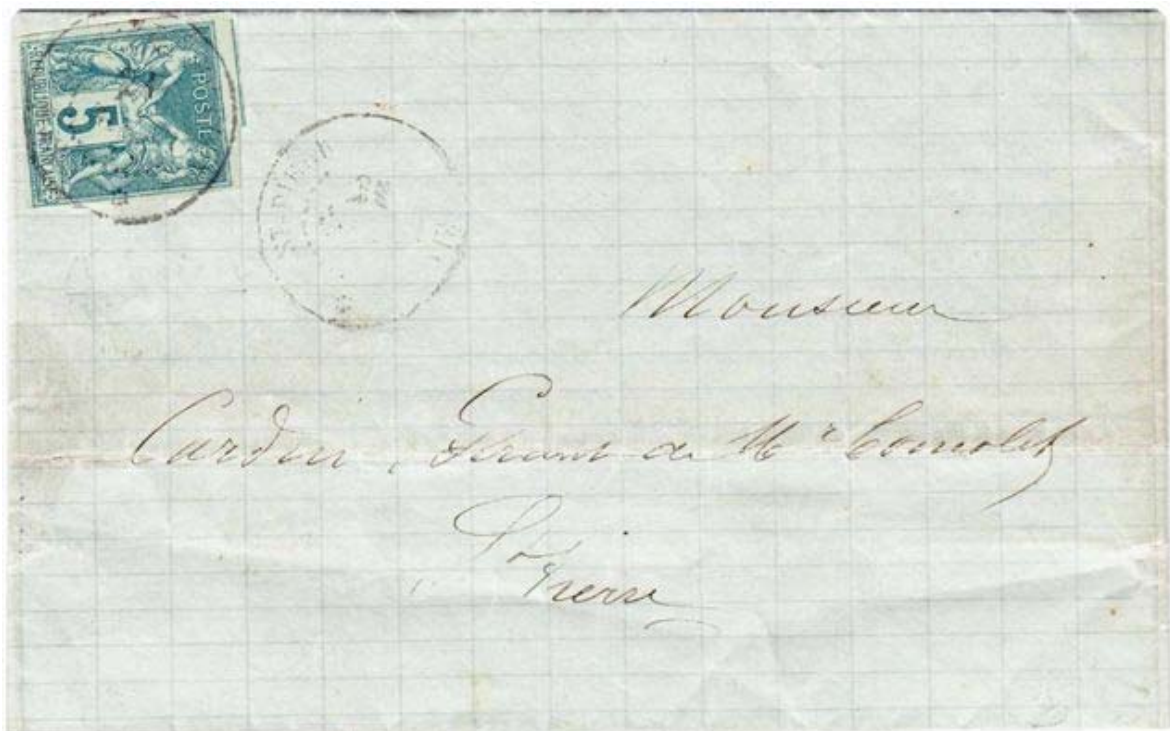 POSTE
5
REPUBLIQUE FRANCAISE
ST PIERRE
Monsieur
Cardin, Gérant de Mr
St
Pierre